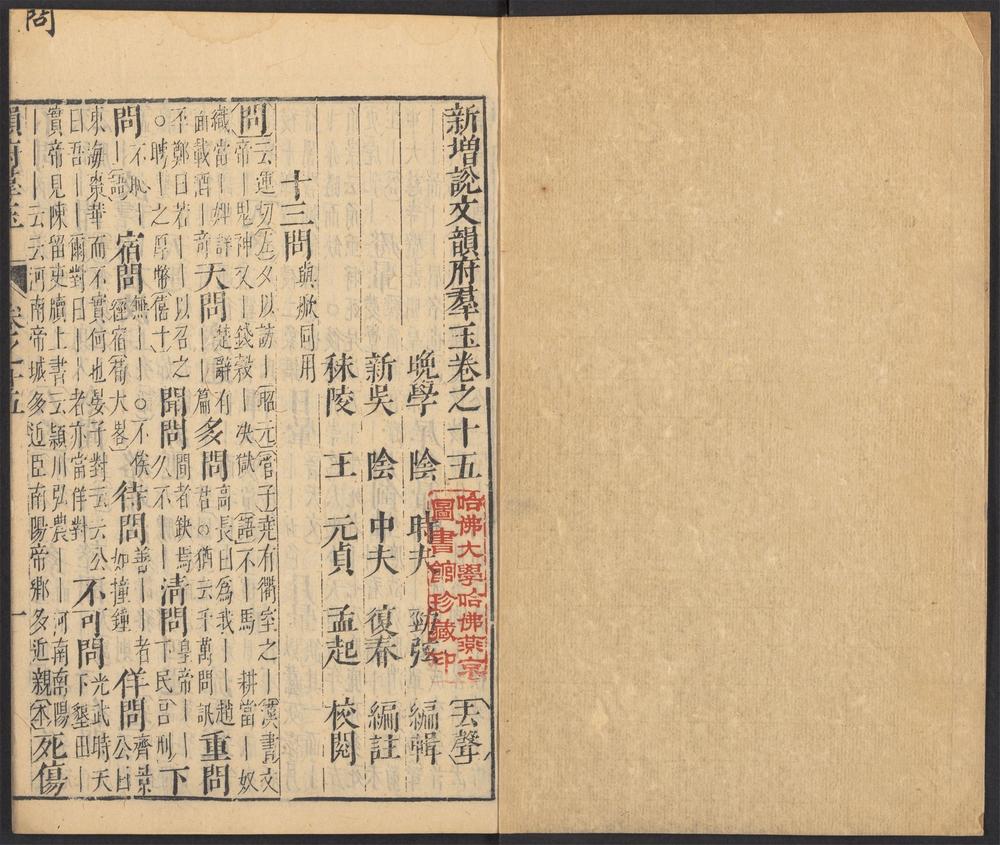 問
新增說文韻府羣玉卷之十五
晚學 陰 時夫 勁弦 編輯 去聲
新吳 陰 中夫 復春 編註
秣陵 王 元貞 孟起 校閱
哈佛大學哈佛燕京
圖書館珍藏印
十三問 與焮同用
問 云運切左夕以訪｜昭元管子堯有衢室之｜漢書文
帝｜鬼神又｜錢穀｜決獄語不｜馬 耕當｜奴
織當｜婢 天問 楚辭有 多問 高長曰爲我｜趙
面載酒｜奇 篇 君○猶云千萬問訊 重問
不鄭曰若｜｜以召之 聞問 間者缺焉 清問 皇帝｜｜ 下
○聘｜之厚幣僖十 久不 下民呂刑
問 不恥｜｜語 宿問 無｜｜○不俟 待問 善｜｜者 佯問 齊景
經宿荀大畧 如撞鐘 公曰
東海棗華而不實何也晏子對云云公
曰吾｜｜爾對曰｜｜者亦當佯對 不可問 光武時天
下墾田｜
實帝見陳留吏牘上書云潁川弘農｜｜河南南陽
｜｜｜云云河南帝城多近臣南陽帝鄉多近親本 死傷
韻府羣玉 卷之十五 一